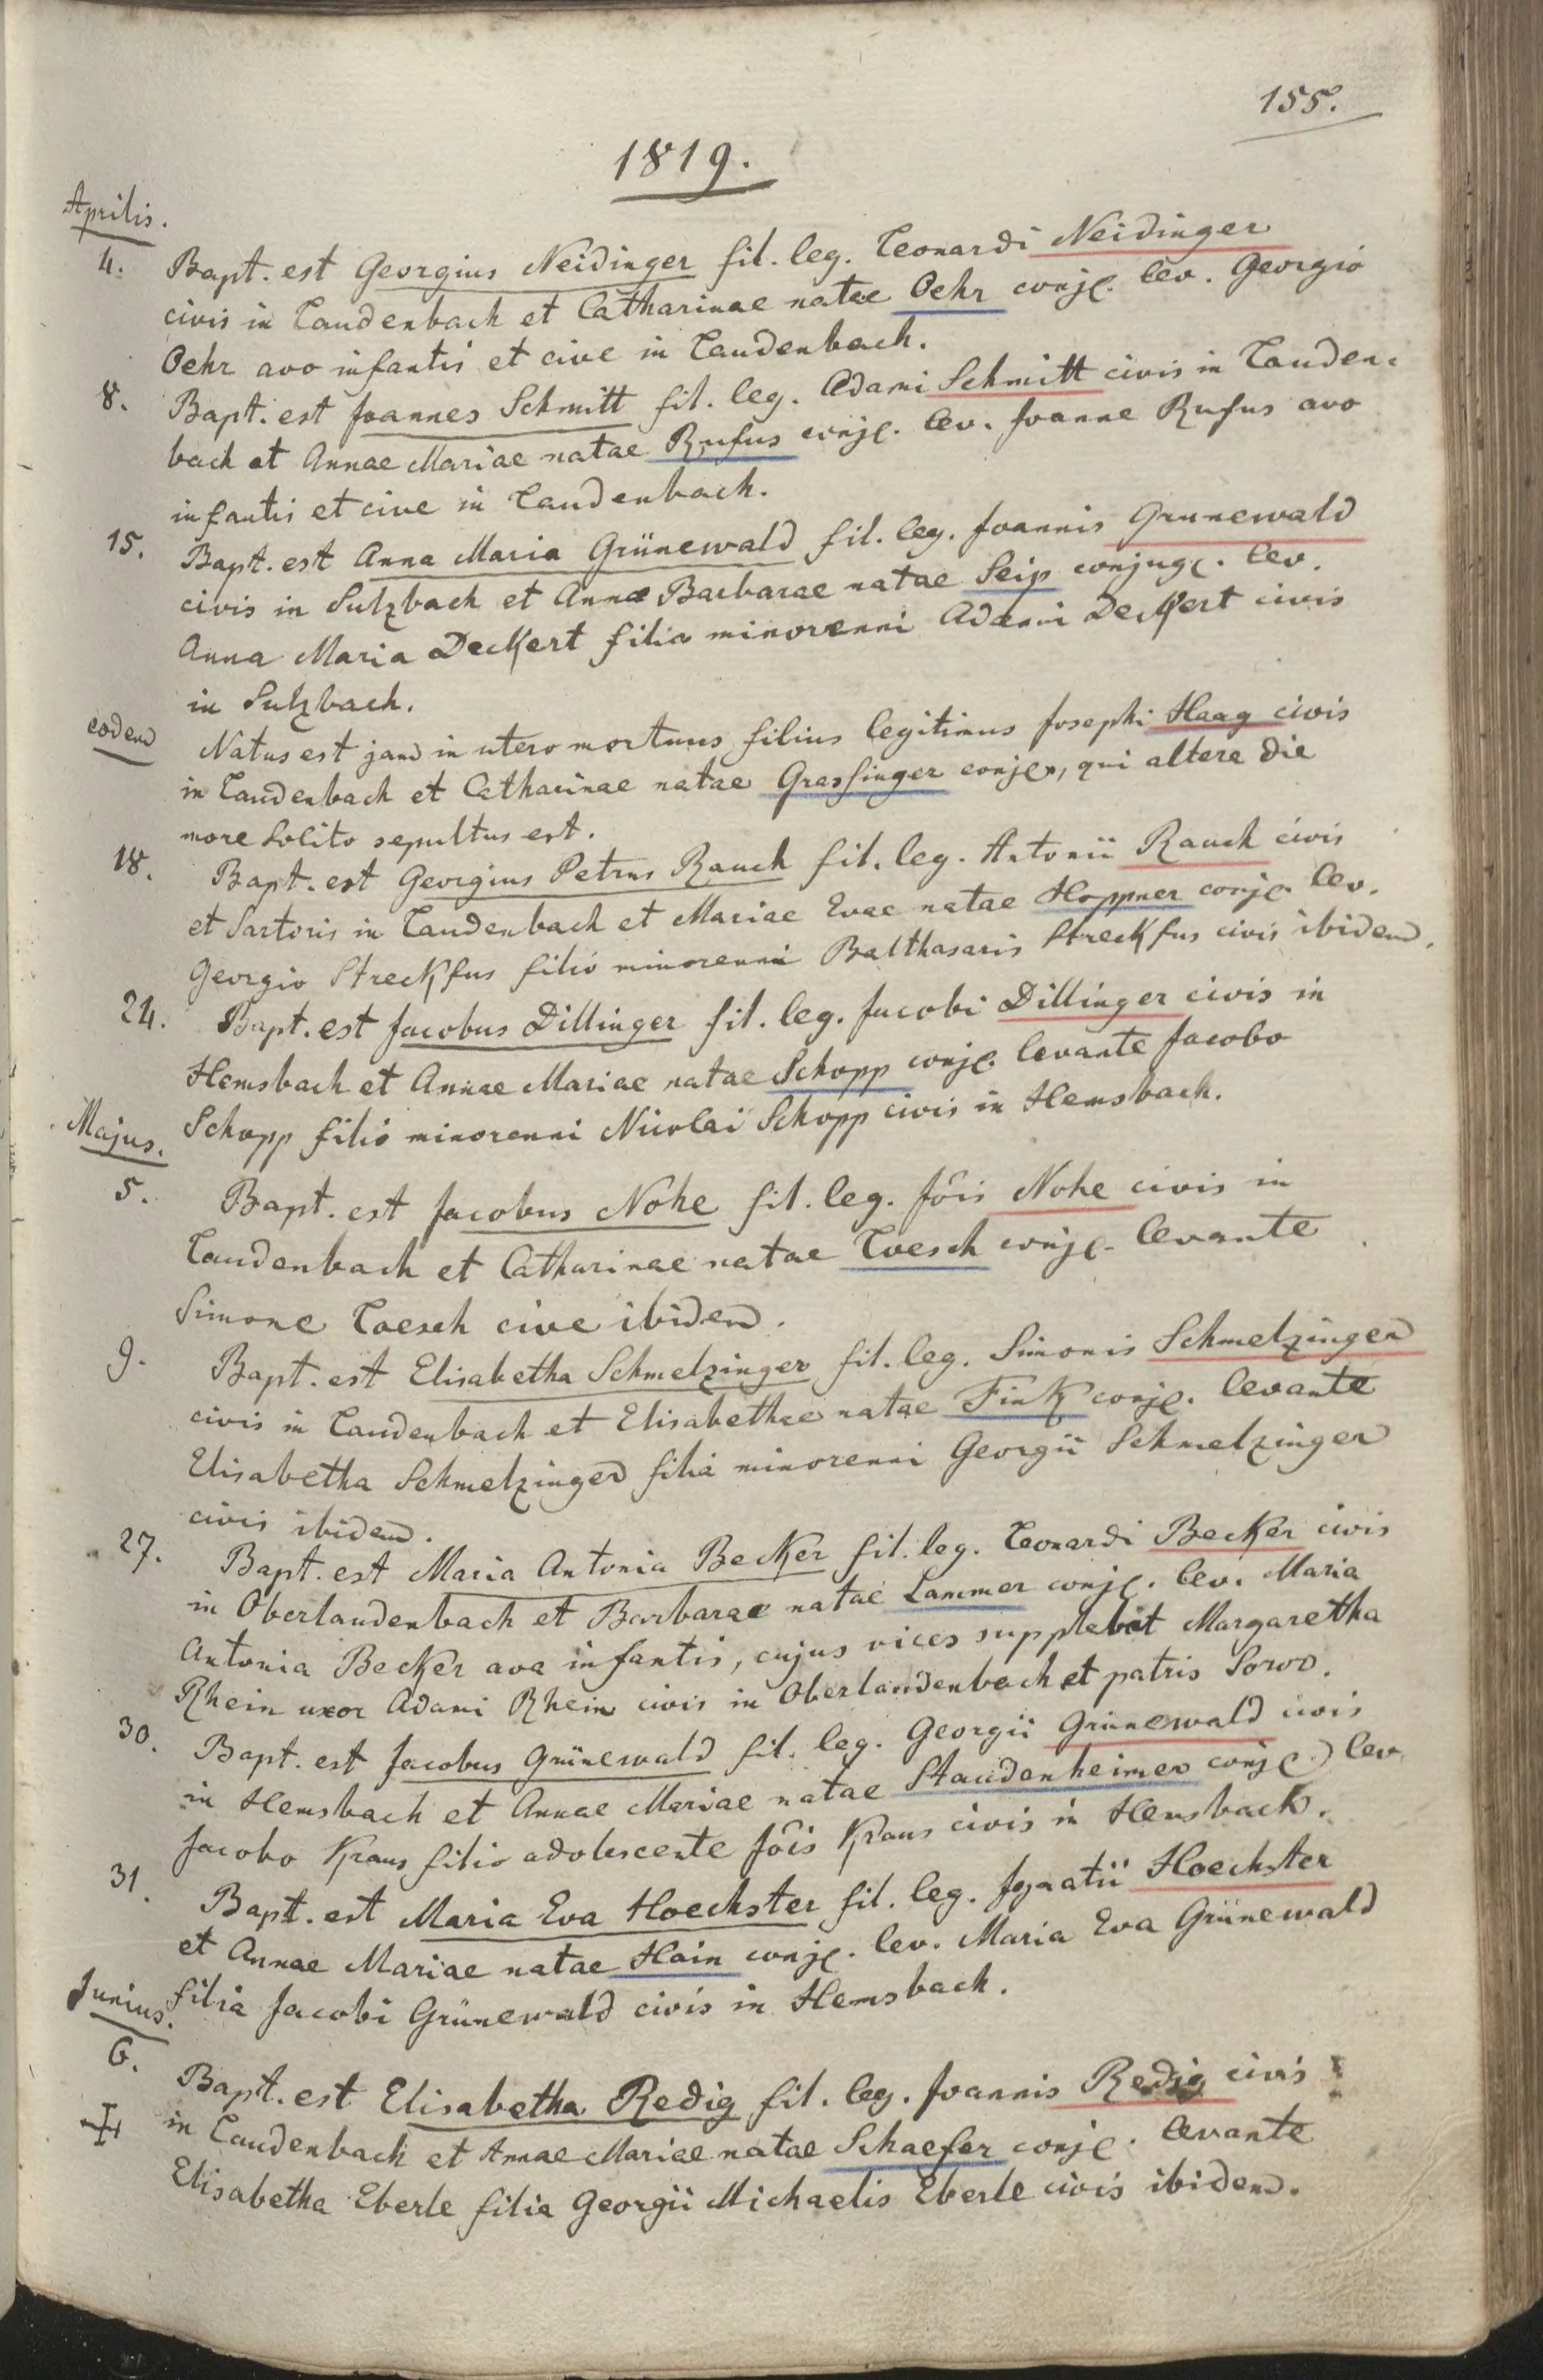 155.
1819.
Aprilis.
4. Bapt. est Georgius Neidinger fil. leg. Leonardi Neidinger
civis in Laudenbach et Catharinae natae Oehr conj. lev. Georgio
Oehr avo infantis et cive in Laudenbach.
8. Bapt. est Joannes Schmitt fil. leg. Adami Schmitt civis in Lauden=
bach et Annae Mariae natae Rufus conj. lev. Joanne Rufus avo
infantis et cive in Laudenbach.
15. Bapt. est Anna Maria Grünewald fil. leg. Joannis Grunewald
civis in Sulzbach et Annae Barbarae natae Seip conjug. lev.
Anna Maria Deckert filia minorenni Adami Deckert civis
in Sulzbach.
eodem Natus est jam in utero mortuus filius legitimus Josephi Haag civis
in Laudenbach et Catharinae natae Grassinger conj., qui altera die
more solito sepultus est.
18. Bapt. est Georgius Petrus Rauch fil. leg. Antonii Rauch civis
et Sartoris in Laudenbach et Mariae Evae natae Hoppner conj. lev.
Georgio Streckfus filio minorenni Balthasaris Streckfus civis ibidem.
24. Bapt. est Jacobus Dillinger fil. leg. Jacobi Dillinger civis in
Hemsbach et Annae Mariae natae Schopp conj. levante Jacobo
Schopp filio minorenni Nicolai Schopp civis in Hemsbach.
Majus.
5. Bapt. est Jacobus Nohe fil. leg. Jõis Nohe civis in
Laudenbach et Catharinae natae Loesch conj. levante
Simone Loesch cive ibidem.
9. Bapt. est Elisabetha Schmelzinger fil. leg. Simonis Schmelzinger
civis in Laudenbach et Elisabethae natae Fink conj. levante
Elisabetha Schmelzinger filia minorenni Georgii Schmelzinger
civis ibidem.
27. Bapt. est Maria Antonia Becker fil. leg. Leonardi Becker civis
in Oberlaudenbach et Barbarae natae Lammer conj. lev. Maria
Antonia Becker ava infantis, cujus vices supplebat Margaretha
Rhein uxor Adami Rhein civis in Oberlaudenbach et patris Soror.
30. Bapt. est Jacobus Grünewald fil. leg. Georgii Grünewald civis
in Hemsbach et Annae Mariae natae Staudenheimer conj. lev.
Jacobo Kraus filio adolescente Jõis Kraus civis in Hemsbach.
31. Bapt. est Maria Eva Hoechster fil. leg. Ignatii Hoechster
et Annae Mariae natae Hain conj. lev. Maria Eva Grünewald
filia Jacobi Grünewald civis in Hemsbach.
Junius.
6. Bapt. est Elisabetha Redig fil. leg. Joannis Redig civis
in Laudenbach et Annae Mariae natae Schaefer conj. levante
Elisabetha Eberle filia Georgii Michaelis Eberle civis ibidem.